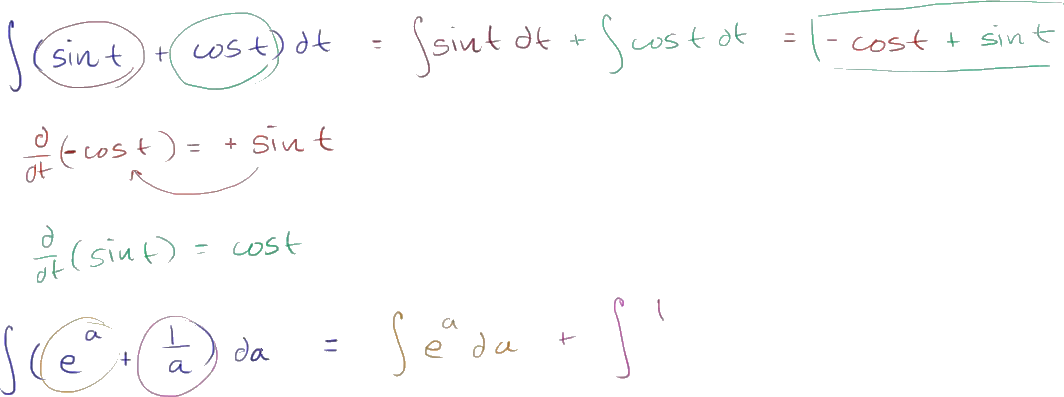 ∫(sin t + cos t) dt = ∫sin t dt + ∫cos t dt = -cos t + sin t
d/dt (-cos t) = + sin t
d/dt (sin t) = cos t
∫(e^a + 1/a) da = ∫e^a da + ∫ 1